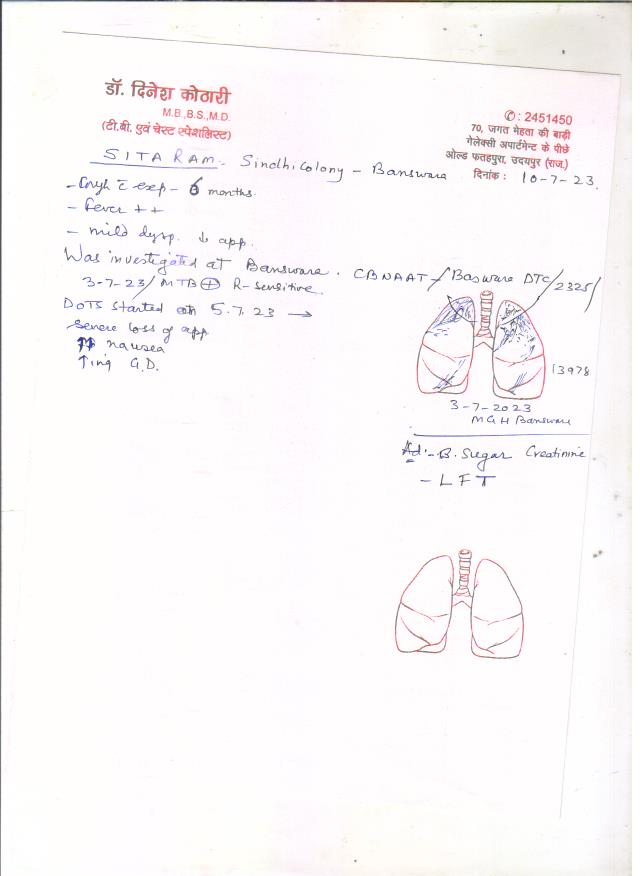 डॉ. दिनेश कोठारी
M.B.,B.S.,M.D.
(टी.बी. एवं चेस्ट स्पेशलिस्ट)
✆: 2451450
70, जगत मेहता की बाड़ी
गेलेक्सी अपार्टमेन्ट के पीछे
ओल्ड फतहपुरा, उदयपुर (राज.)
दिनांक : 10-7-23.
SITARAM - Sindhi Colony - Banswara
- Cough c̄ exp - 6 months.
- fever ++
- mild dysp. ↓ app.
Was investigated at Banswara. CBNAAT-/Basware DTC/2325/
3-7-23/ MTB ⊕ R-sensitive.
DOTS started on 5.7.23 →
Severe loss of app
nausea
↑ing G.D.
13978
3-7-2023
MGH Banswara
Ad:- B. Sugar Creatinine
- LFT